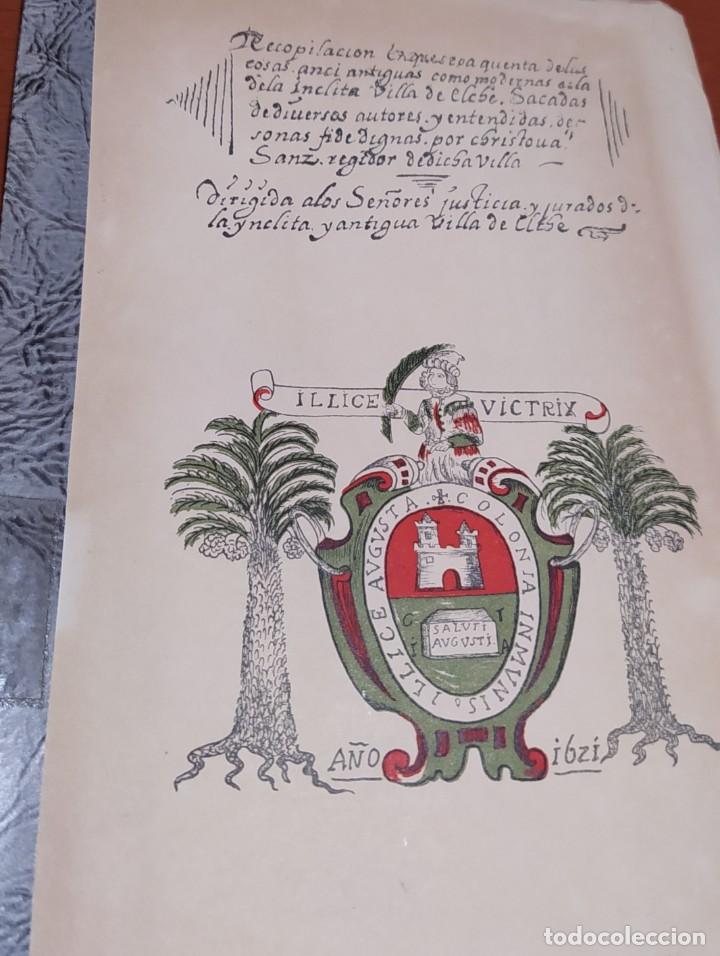 Recopilacion en que se da quenta de las
cosas anci antiguas como modernas de la
de la Inclita Villa de Elche. Sacadas
de diversos autores. y entendidas. de
sonas fide dignas. por christoval
Sanz. regidor de dicha villa
Dirigida a los Señores justicia. y jurados d-
la. ynclita. y antigua Villa de Elche
ILLICE VICTRIX
ILLICE AUGUSTA COLONIA INMUNIS
C I T A
SALUTI
AUGUSTI.
AÑO 1621
todocoleccion